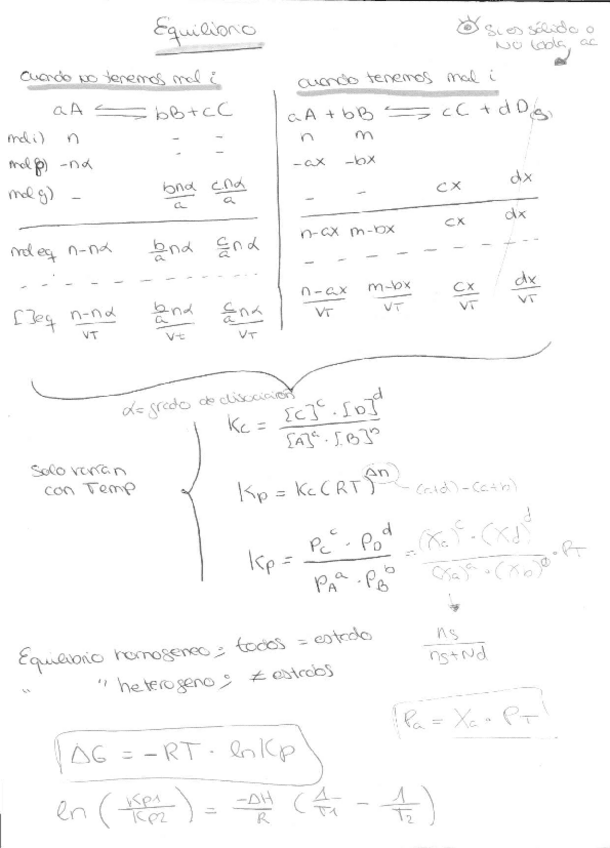 Equilibrio
Si es sólido o
NO cuenta, ac
cuando NO tenemos mol i
aA ⇌ bB + cC
mol i) n - -
mol p) -nα - -
mol g) - bnα/a cnα/a
mol eq n-nα b/a nα c/a nα
[ ]eq (n-nα)/VT (b/a nα)/Vt (c/a nα)/VT
cuando tenemos mol i
aA + bB ⇌ cC + dD(s)
n m
-ax -bx
- - cx dx
n-ax m-bx cx dx
(n-ax)/VT (m-bx)/VT cx/VT dx/VT
α = grado de disociación
Solo varían
con Temp
Kc = [C]^c · [D]^d / [A]^a · [B]^b
Kp = Kc (RT)^Δn (c+d)-(a+b)
Kp = Pc^c · PD^d / PA^a · PB^b = (Xc)^c · (Xd)^d / (Xa)^a · (Xb)^b · PT
ns / ns+Nd
Equilibrio homogeneo: todos = estado
" " heterogeno: ≠ estados
Pa = Xa · PT
ΔG = -RT · ln Kp
ln (Kp1/Kp2) = -ΔH/R (1/T1 - 1/T2)